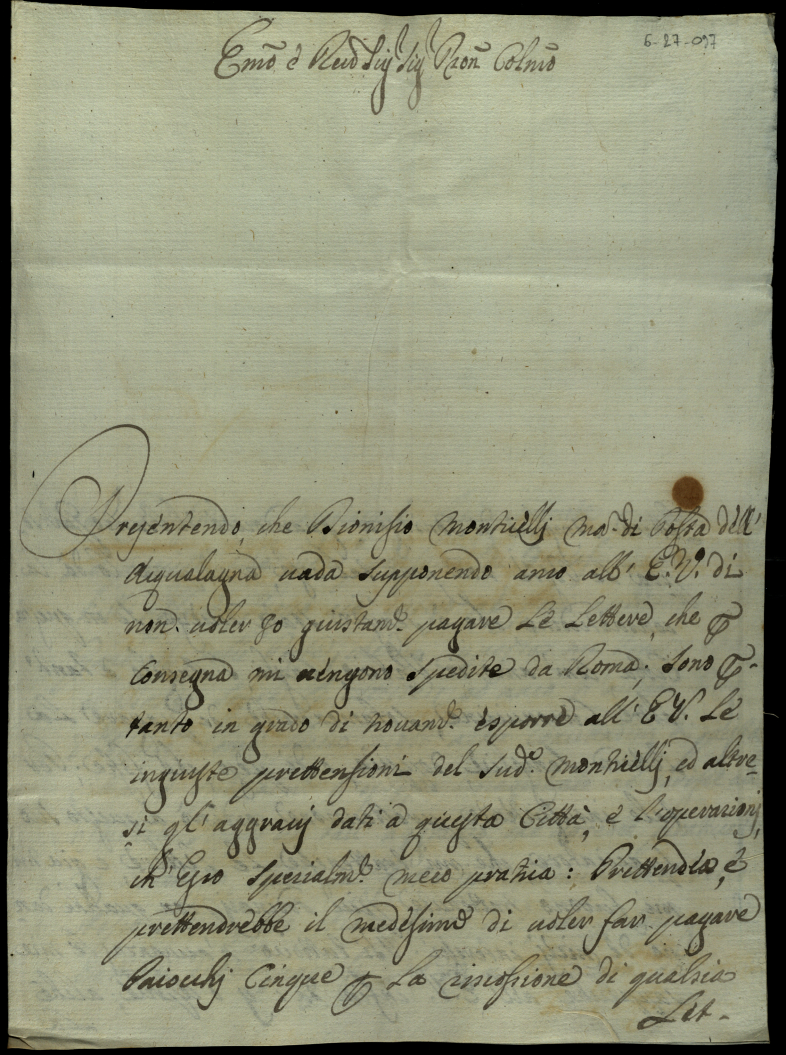 6-27-097
Emo e Rmo Sig Sig Pron Colmo
Presentendo, che Dionisio Monticelli Mo di Posta dell'
Acqualagna vada supponendo anco all' E.V. di
non voler Io giustam.e pagare Le Lettere, che ₽
Consegna mi vengono spedite da Roma; sono ₽-
tanto in grado di novam.e esporre all' E.V. Le
ingiuste prettensioni del sud.o Monticelli, ed altre-
si gl' aggravj dati a questa Città, e l'operazionj,
ch' Egio specialm.e meco pratica: Prettende, e
prettendrebbe il medesimo di voler far pagare
Baiocchj Cinque ₽ La riscossione di qualsia
Let-